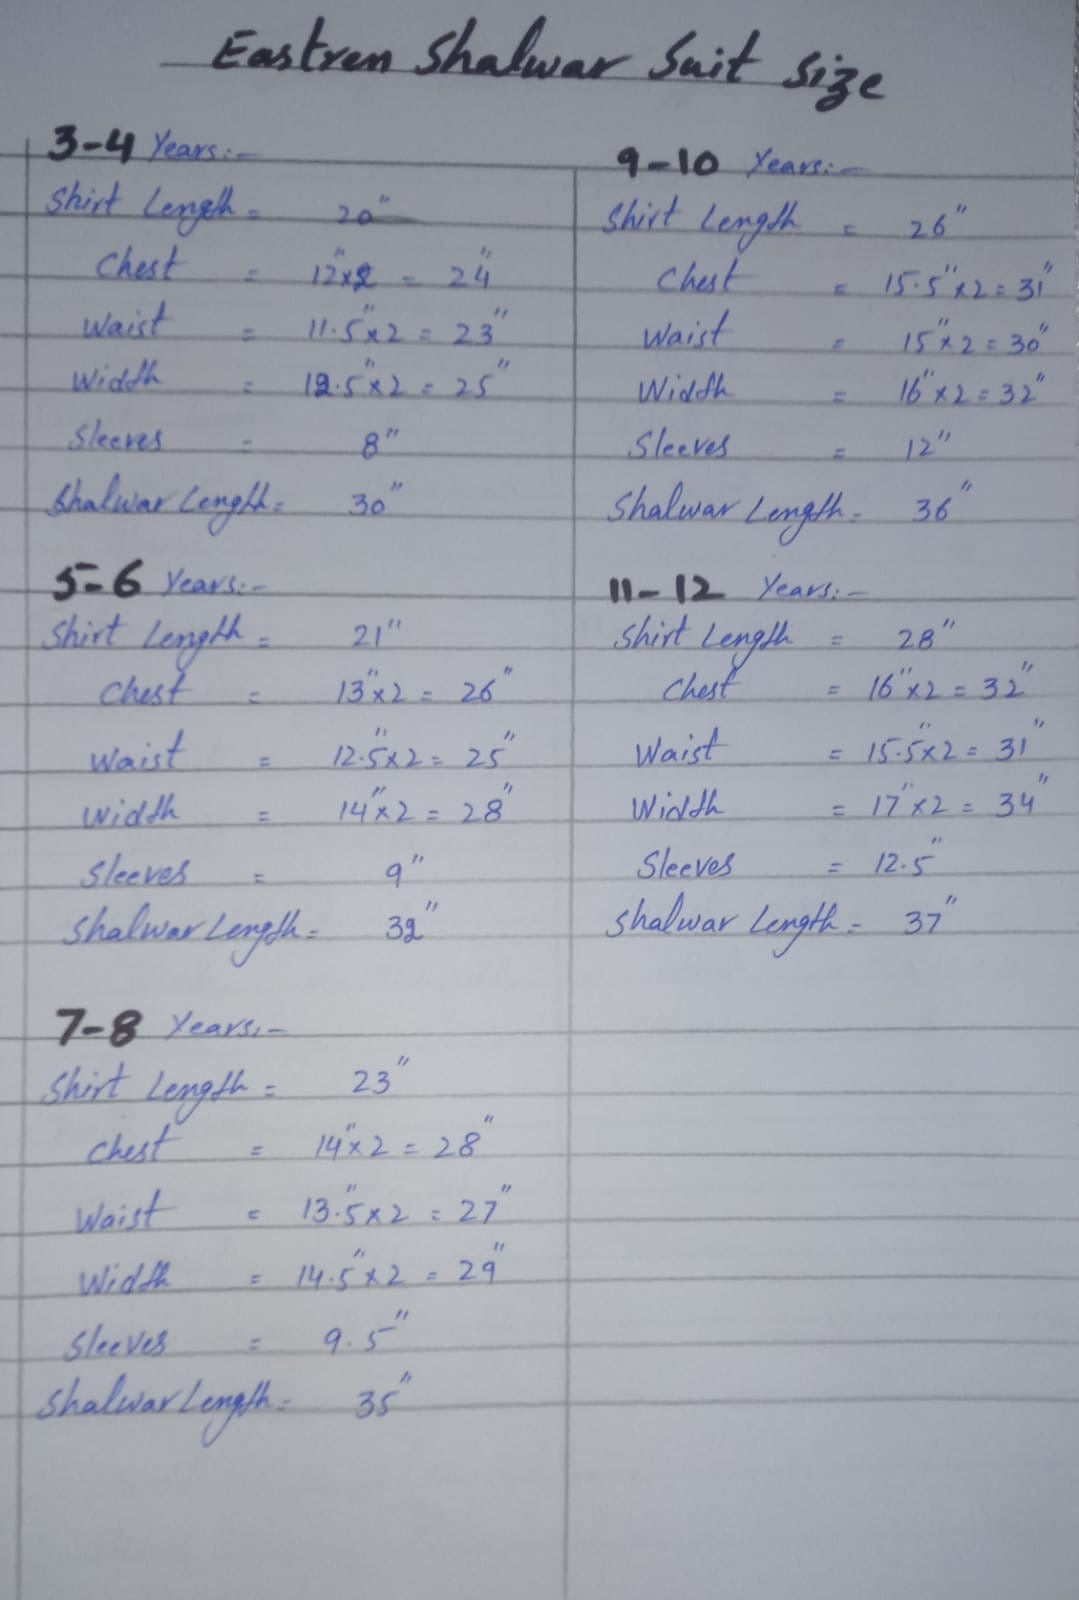 Eastren Shalwar Suit Size
3-4 Years:-
Shirt Length = 20"
Chest = 12"x2 = 24"
Waist = 11.5"x2 = 23"
Width = 12.5"x2 = 25"
Sleeves = 8"
Shalwar Length = 30"
5-6 Years:-
Shirt Length = 21"
Chest = 13"x2 = 26"
Waist = 12.5"x2 = 25"
Width = 14"x2 = 28"
Sleeves = 9"
Shalwar Length = 32"
7-8 Years:-
Shirt Length = 23"
Chest = 14"x2 = 28"
Waist = 13.5"x2 = 27"
Width = 14.5"x2 = 29"
Sleeves = 9.5"
Shalwar Length = 35"
9-10 Years:-
Shirt Length = 26"
Chest = 15.5"x2 = 31"
Waist = 15"x2 = 30"
Width = 16"x2 = 32"
Sleeves = 12"
Shalwar Length = 36"
11-12 Years:-
Shirt Length = 28"
Chest = 16"x2 = 32"
Waist = 15.5"x2 = 31"
Width = 17"x2 = 34"
Sleeves = 12.5"
Shalwar Length = 37"